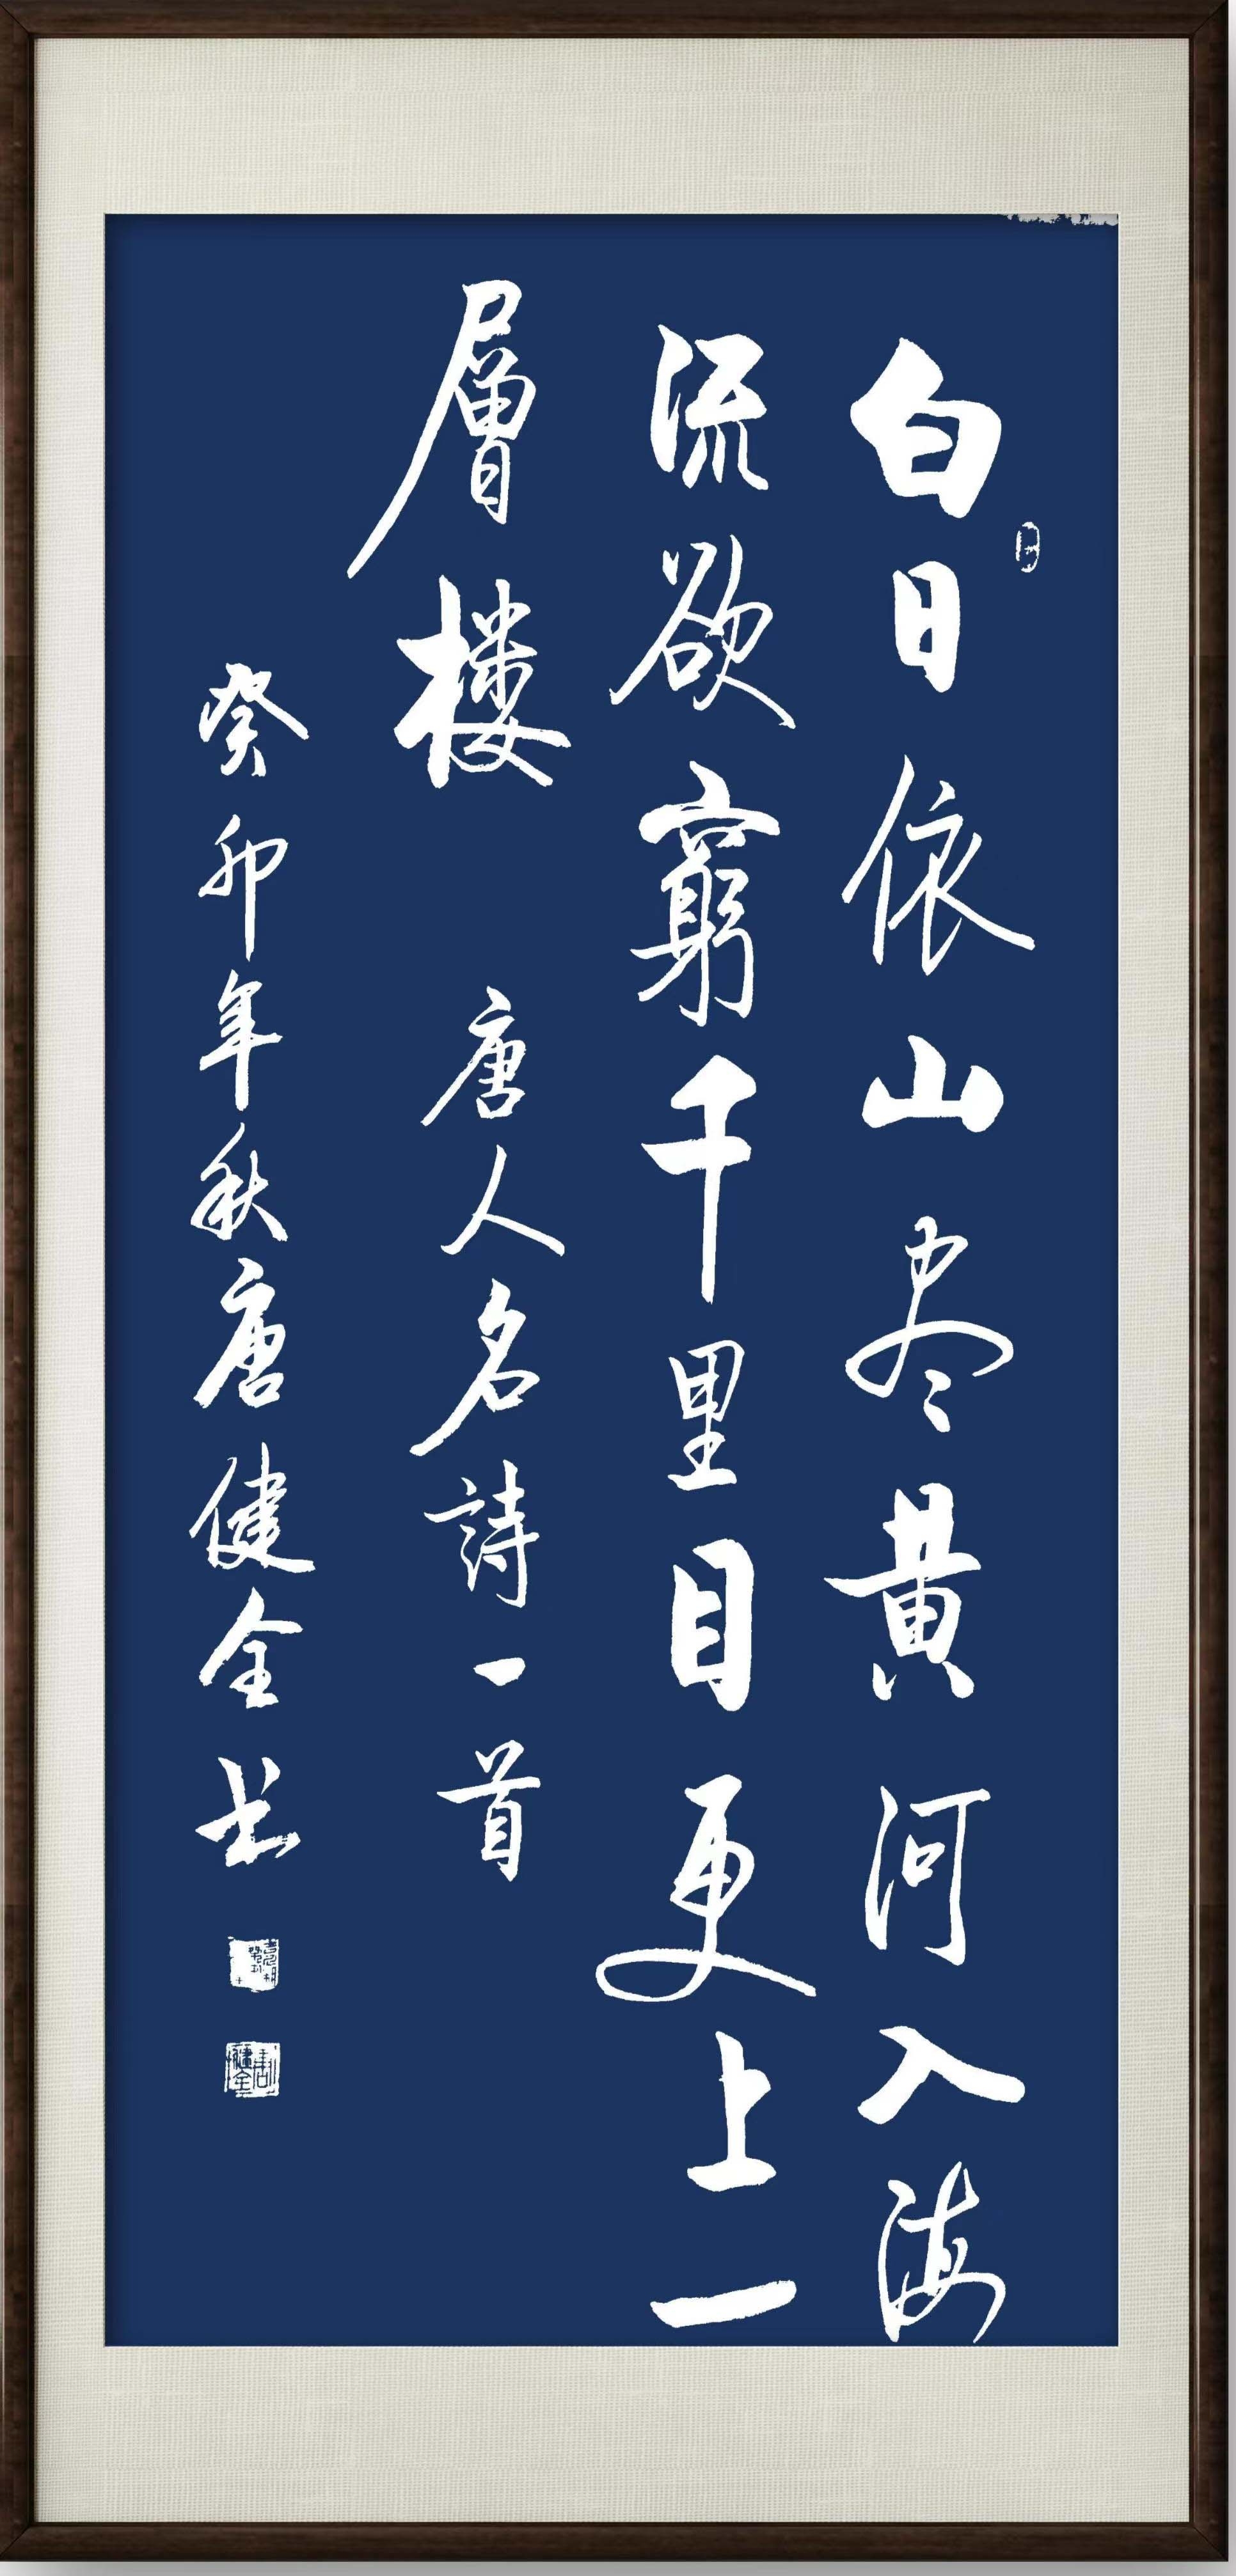 白日依山尽黄河入海
流欲窮千里目更上一
層楼 唐人名詩一首
癸卯年秋唐健全书